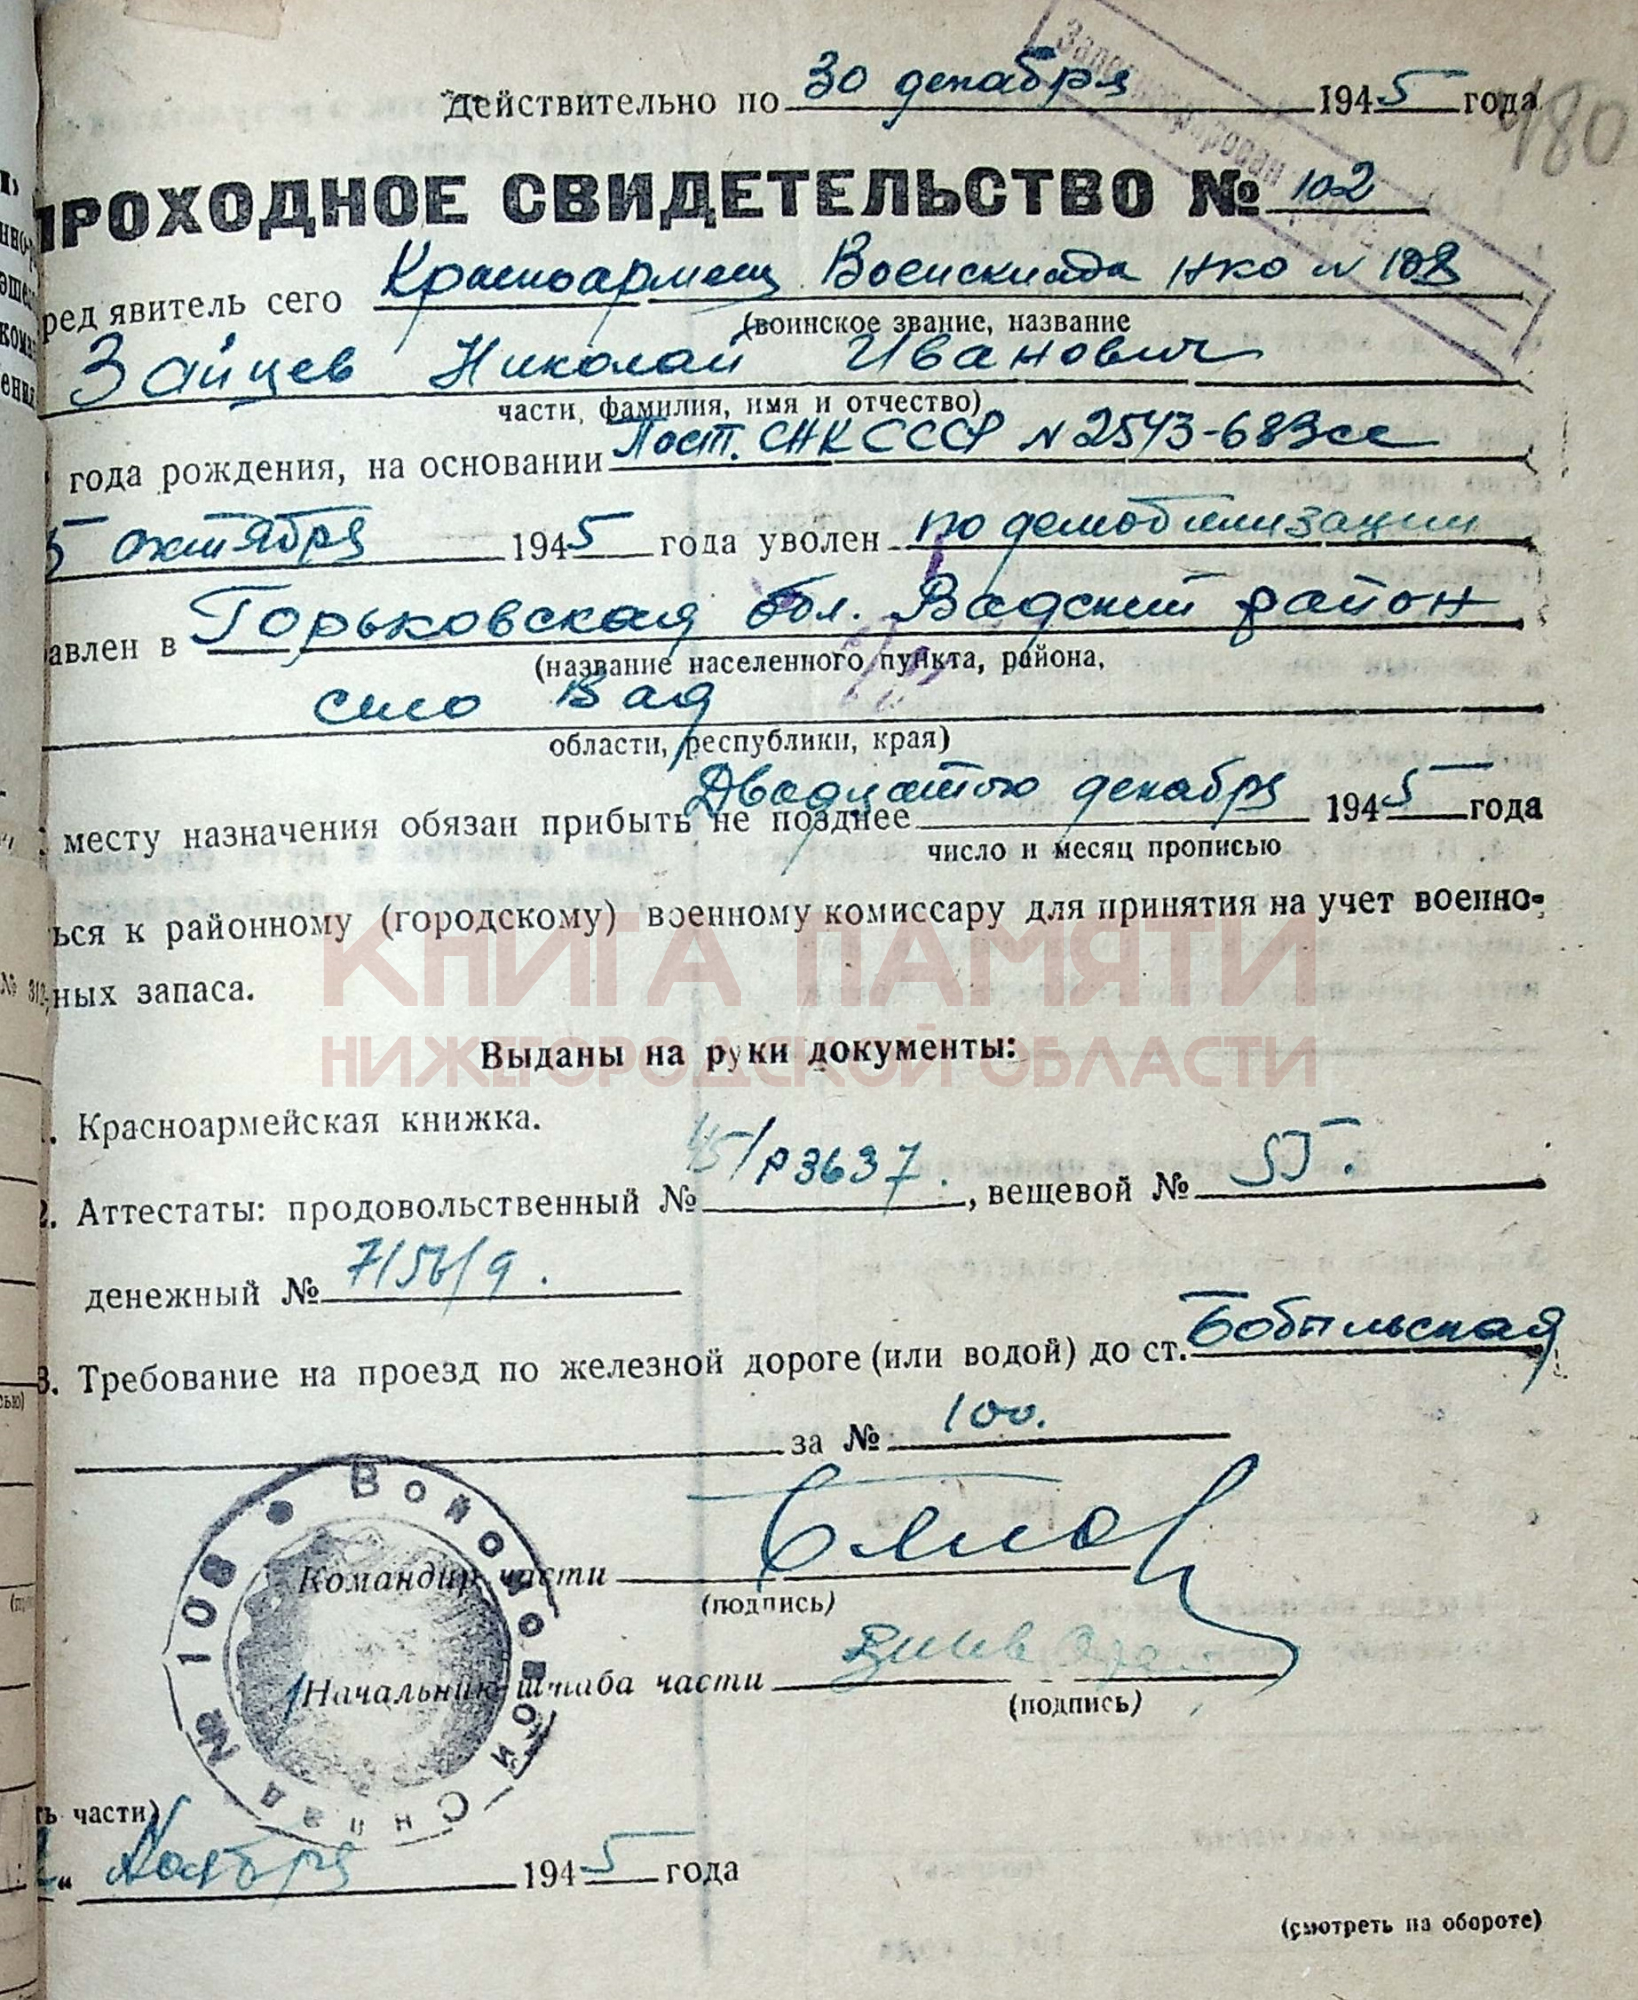 Действительно по 30 декабря 1945 года
180
ПРОХОДНОЕ СВИДЕТЕЛЬСТВО № 102
ред'явитель сего Красноармеец Военсклада НКО N 108
(воинское звание, название
Зайцев Николай Иванович
части, фамилия, имя и отчество)
года рождения, на основании Пост. СНК СССР N 2543-683сс
5 октября 1945 года уволен по демобилизации
авлен в Горьковская обл. Вадский район
(название населенного пункта, района,
село Вад
области, республики, края)
месту назначения обязан прибыть не позднее Двадцатого декабря 1945 года
число и месяц прописью
ься к районному (городскому) военному комиссару для принятия на учет военно-
ных запаса.
КНИГА ПАМЯТИ
НИЖЕГОРОДСКОЙ ОБЛАСТИ
Выданы на руки документы:
1. Красноармейская книжка.
2. Аттестаты: продовольственный № 45/Р3637., вещевой № 55.
денежный № 7/56/9.
3. Требование на проезд по железной дороге (или водой) до ст. Бобыльская
за № 100.
Командир части
(подпись)
Начальник штаба части
(подпись)
Войсковой Склад № 108
ть части)
" Ноября 1945 года
(смотреть на обороте)